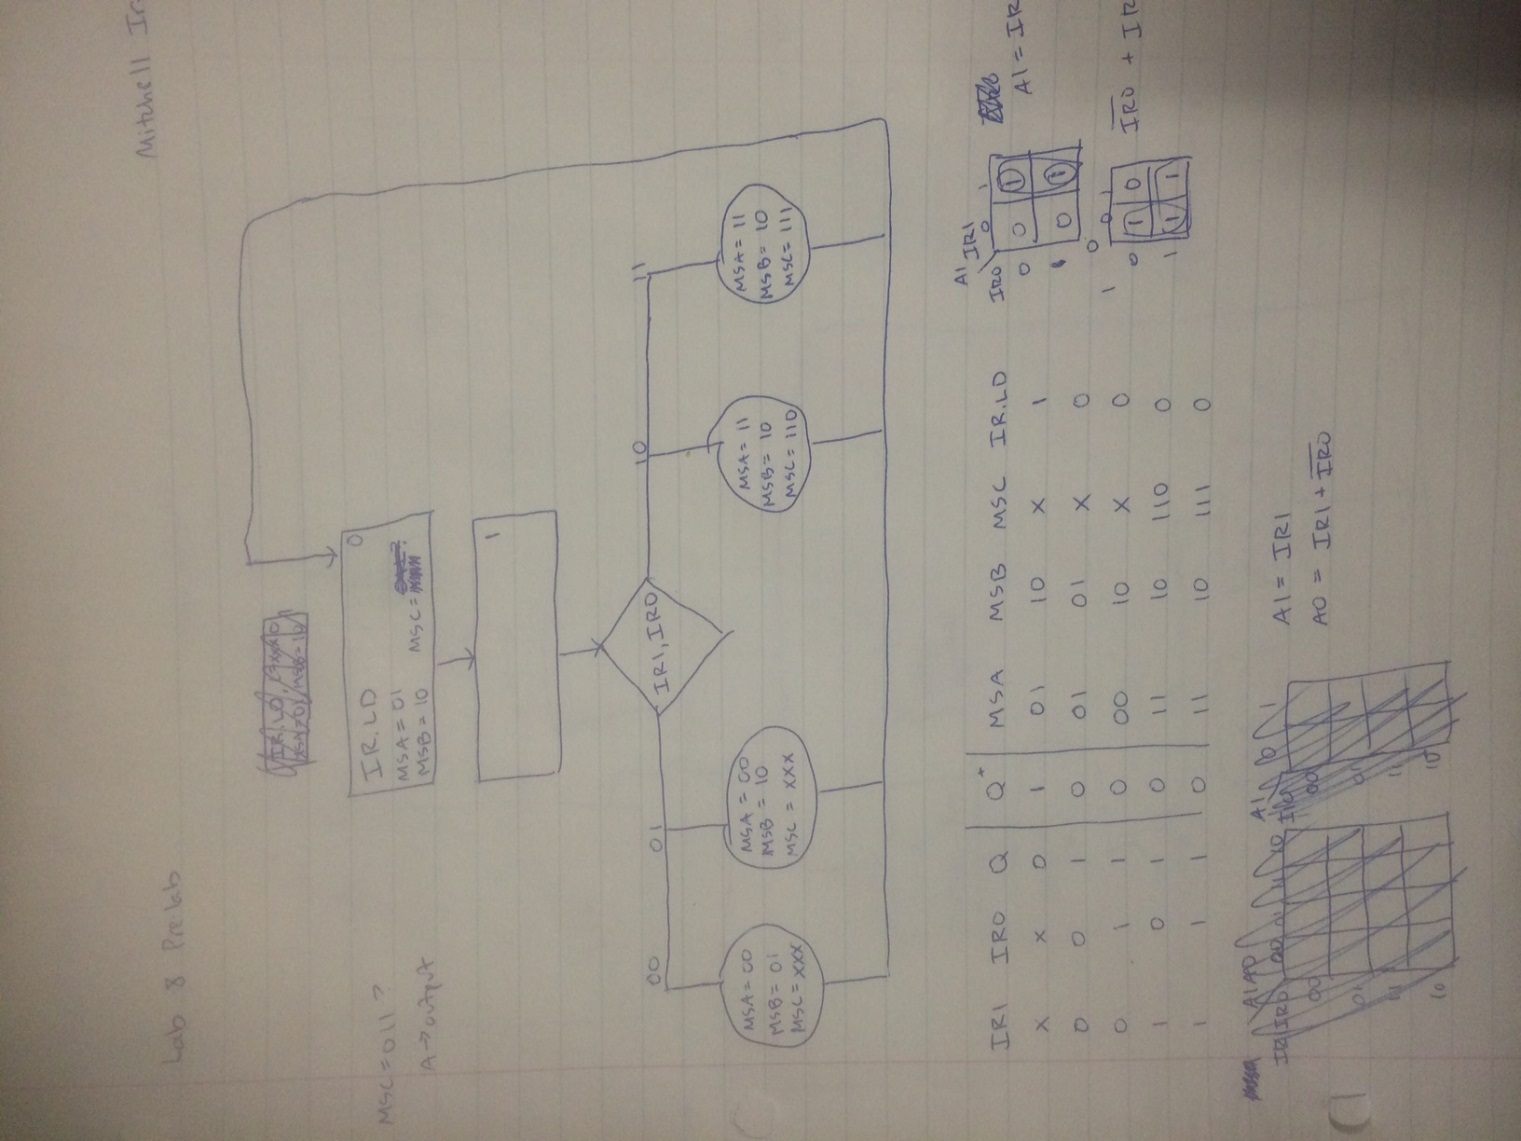 Lab 8 Prelab
MSC = 011 ?
A → output
IR.LD 0
MSA = 01
MSB = 10 MSC =
1
IR1, IR0
00 01 10 11
MSA = 00
MSB = 01
MSC = XXX
MSA = 00
MSB = 10
MSC = XXX
MSA = 11
MSB = 10
MSC = 110
MSA = 11
MSB = 10
MSC = 111
IR1 IR0 Q Q⁺ MSA MSB MSC IR.LD
X X 0 1 01 10 X 1
0 0 1 0 01 01 X 0
0 1 1 0 00 10 X 0
1 0 1 0 11 10 110 0
1 1 1 0 11 10 111 0
A1
IR0 IR1
0 1
0 0 1
0 1
A1 = IR
0
1
0 1
0 1 0
1 1 1
I̅R̅0̅ + IR
A1 = IR1
A0 = IR1 + I̅R̅0̅